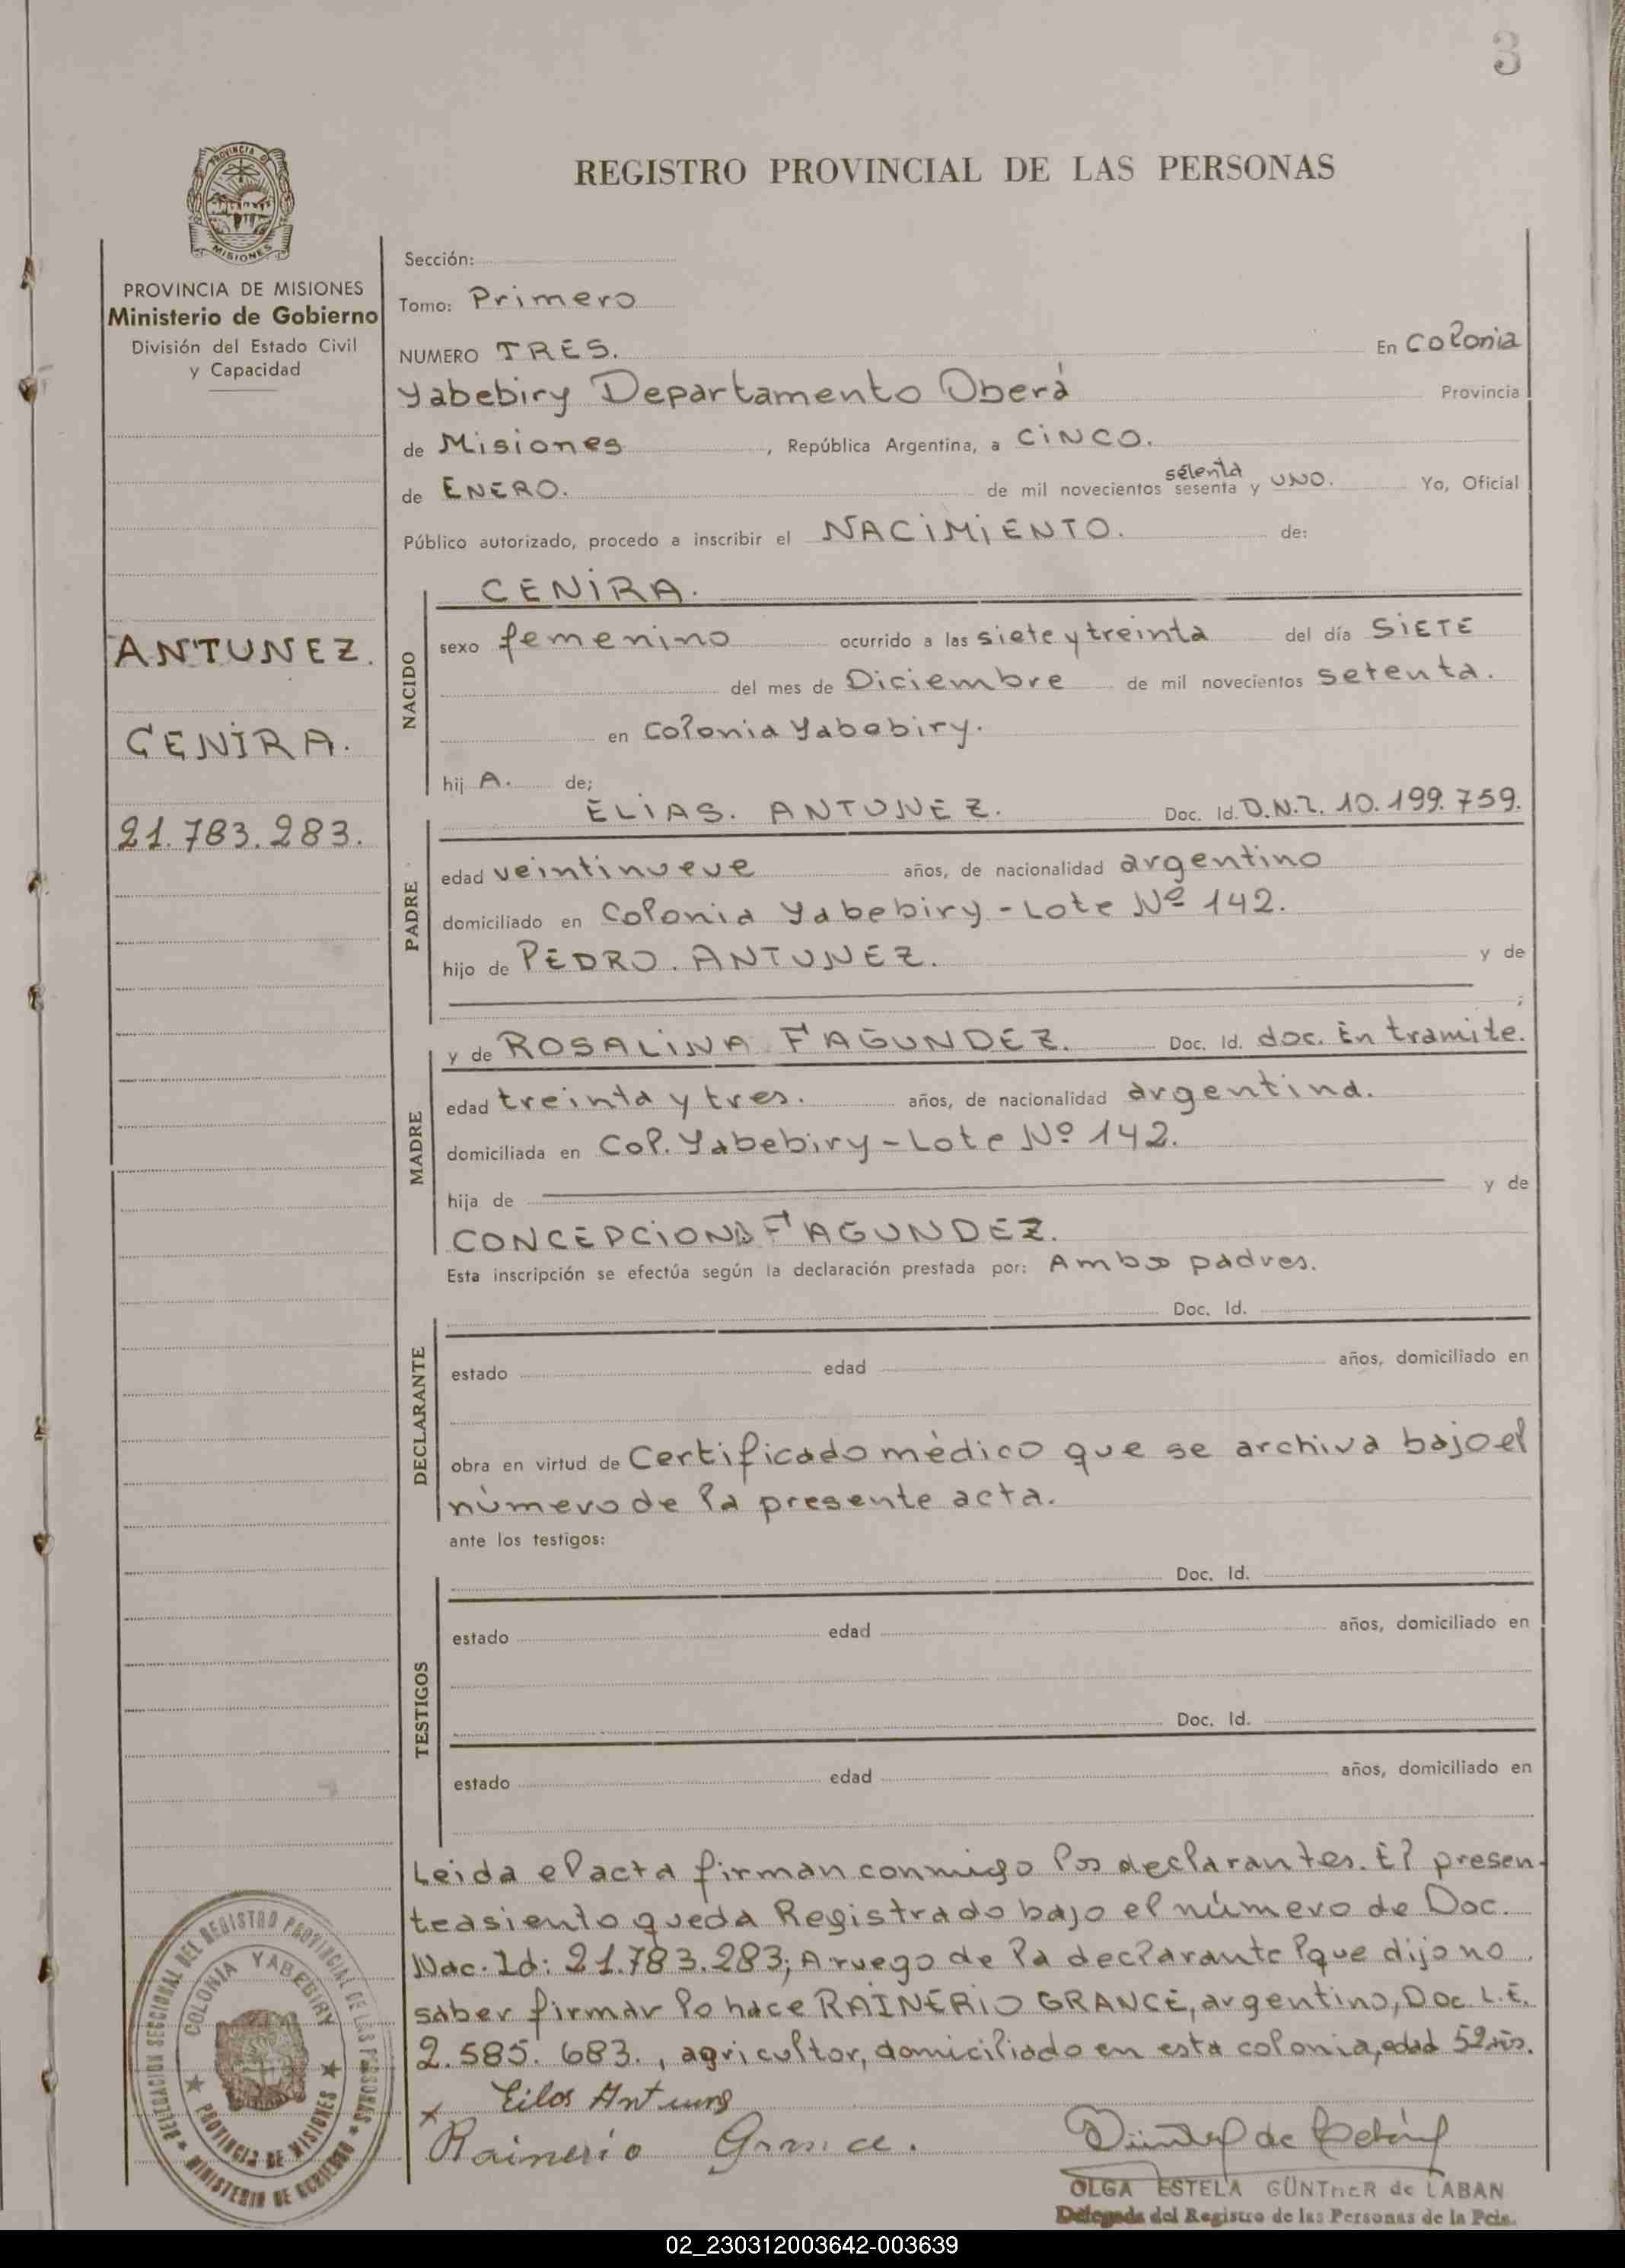 3
PROVINCIA DE
MISIONES
REGISTRO PROVINCIAL DE LAS PERSONAS
PROVINCIA DE MISIONES
Ministerio de Gobierno
División del Estado Civil
y Capacidad
ANTUNEZ.
CENIRA.
21.783.283.
Sección:
Tomo: Primero
NUMERO TRES. En Colonia
Yabebiry Departamento Oberá Provincia
de Misiones, República Argentina, a CINCO.
de ENERO. de mil novecientos sesenta setenta y UNO. Yo, Oficial
Público autorizado, procedo a inscribir el NACIMIENTO. de:
NACIDO
CENIRA.
sexo femenino ocurrido a las siete y treinta del día SIETE
del mes de Diciembre de mil novecientos setenta.
en Colonia Yabebiry.
hij A. de;
PADRE
ELIAS. ANTUNEZ. Doc. Id. D.N.I. 10.199.759.
edad veintinueve años, de nacionalidad argentino
domiciliado en Colonia Yabebiry - Lote Nº 142.
hijo de PEDRO. ANTUNEZ. y de
;
MADRE
y de ROSALINA FAGUNDEZ. Doc. Id. doc. En tramite.
edad treinta y tres. años, de nacionalidad argentina.
domiciliada en Col. Yabebiry - Lote Nº 142.
hija de y de
CONCEPCIONA FAGUNDEZ.
Esta inscripción se efectúa según la declaración prestada por: Ambos padres.
DECLARANTE
Doc. Id.
estado edad años, domiciliado en
obra en virtud de Certificado médico que se archiva bajo el
número de la presente acta.
ante los testigos:
TESTIGOS
Doc. Id.
estado edad años, domiciliado en
Doc. Id.
estado edad años, domiciliado en
Leida el acta firman conmigo los declarantes. El presen-
te asiento queda Registrado bajo el número de Doc.
Nac. Id: 21.783.283; A ruego de la declarante que dijo no
saber firmar lo hace RAINERIO GRANCE, argentino, Doc. L.E.
2.585.683., agricultor, domiciliado en esta colonia, edad 52
Antunez
Rainerio Grance.
OLGA ESTELA GÜNTHER de LABAN
Delegada del Registro de las Personas de la Pcia.
DELEGACION SECCIONAL DEL REGISTRO PROVINCIAL DE LAS PERSONAS
MINISTERIO DE GOBIERNO
COLONIA YABEBIRY
PROVINCIA DE MISIONES
02_230312003642-003639